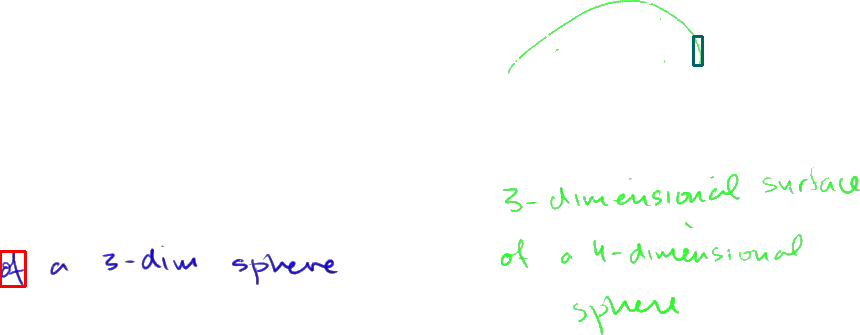 of a 3-dim sphere
3-dimensional surface
of a 4-dimensional
sphere